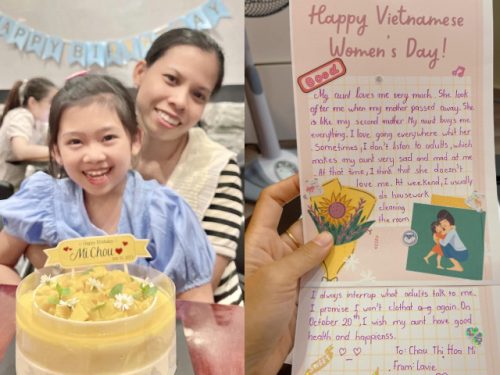 HAPPY BIRTHDAY
Happy Birthday
Mi Chou
Happy Vietnamese
Women's Day!
Good
My aunt loves me very much. She look
after me when my mother passed away. She
is like my second mother. My aunt buys me
everything. I love going everywhere what her
. Sometimes, I don't listen to adults, which
makes my aunt very sad and mad at me
. At that time, I think that she doesn't
love me. At weekend, I usually
do housework
cleaning
the room
I always interrup what adults talk to me.
I promise I won't clothat again. On
October 20th, I wish my aunt have good
health and happienss.
To: Chau Thị Hoa Mi
From: Lavie